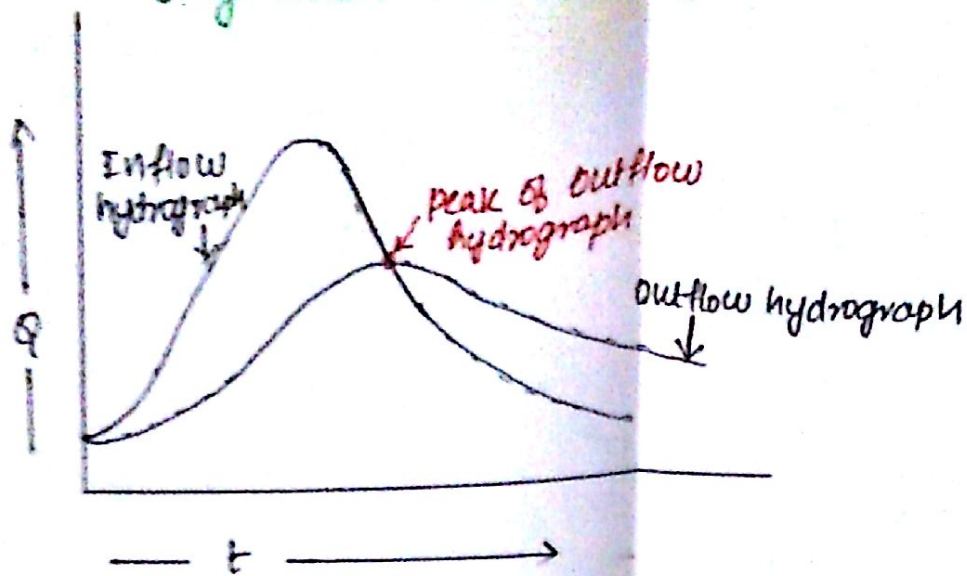 Inflow
hydrograph
peak of outflow
hydrograph
outflow hydrograph
Q
t